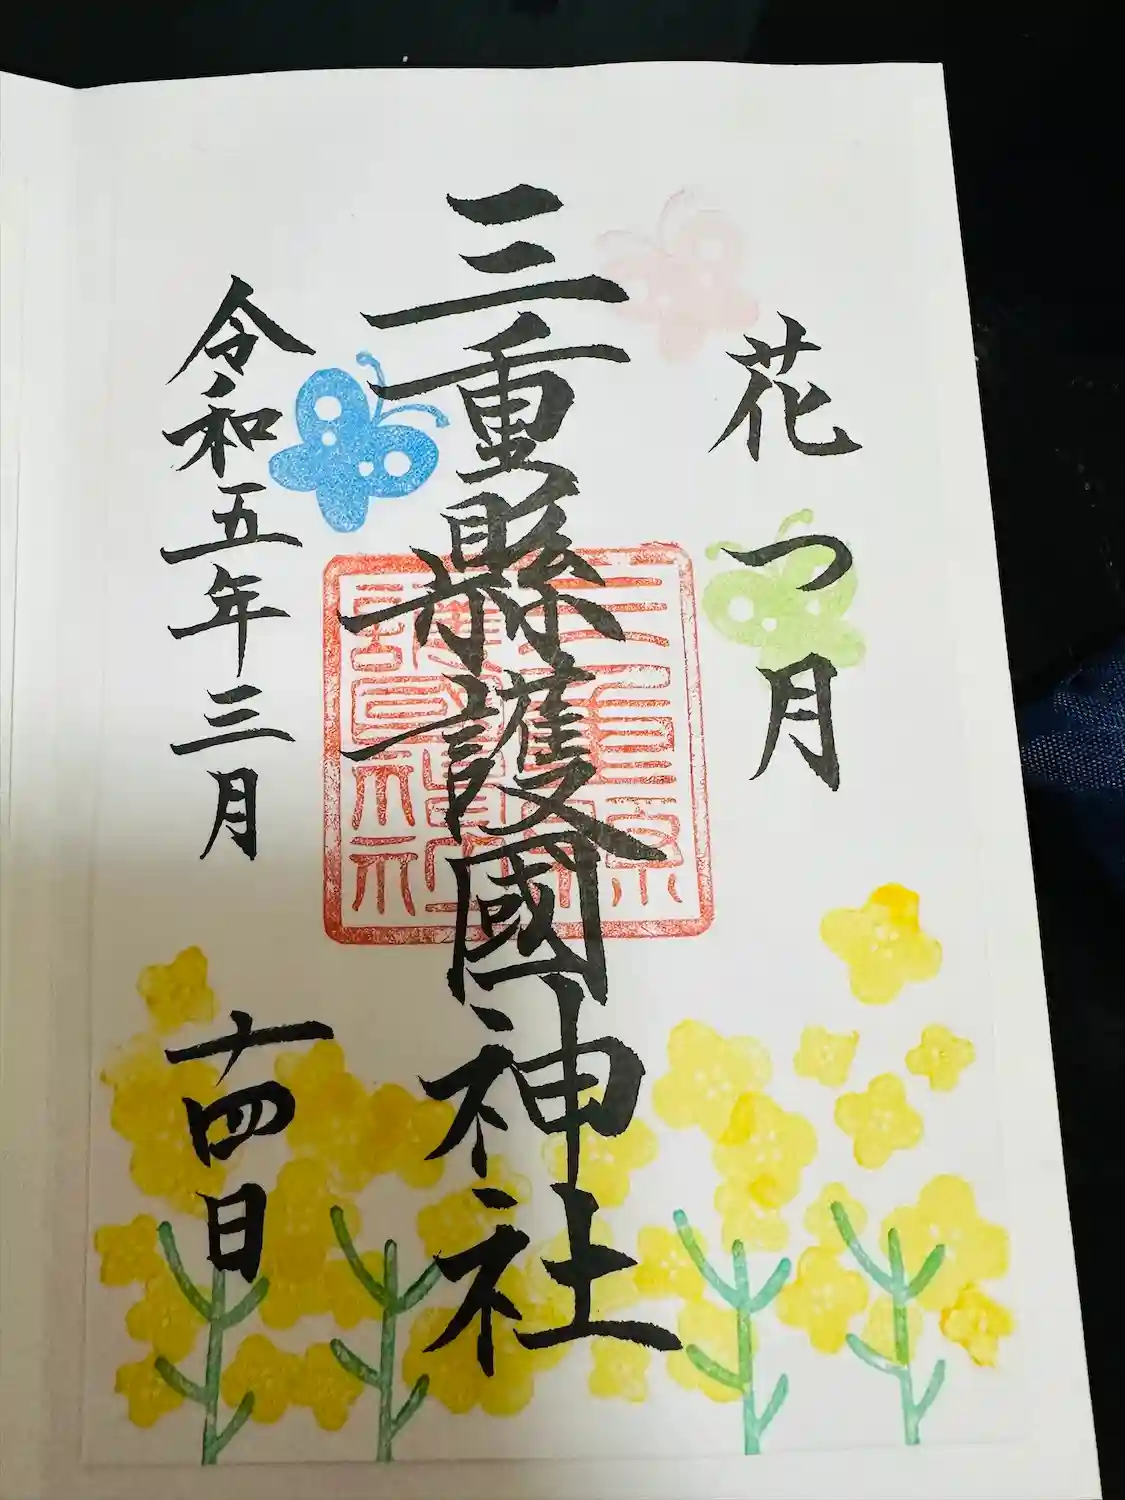 花つ月
三重縣護國神社
三重縣護國神社
令和五年三月十四日